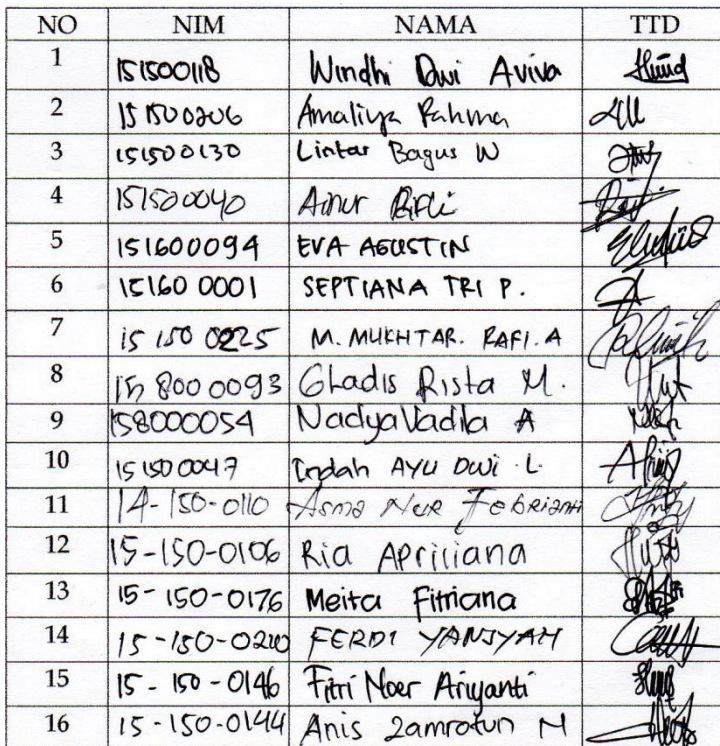 NO NIM NAMA TTD
1 151500118 Windhi Dwi Aviva
2 151500206 Amaliya Rahma
3 151500130 Lintar Bagus W
4 151500040 Ainur Rifli
5 151600094 EVA AGUSTIN
6 151600001 SEPTIANA TRI P.
7 15 150 0225 M. MUKHTAR. RAFI. A
8 15 8000093 Gladis Rista M.
9 158000054 Nadya Vadila A
10 151500047 Indah AYU DWI L.
11 14-150-0110 Asma Nur Febrianti
12 15-150-0106 Ria Apriliana
13 15-150-0176 Meita Fitriana
14 15-150-0220 FERDI YANSYAH
15 15-150-0146 Fitri Noer Ariyanti
16 15-150-0144 Anis Zamrotun N